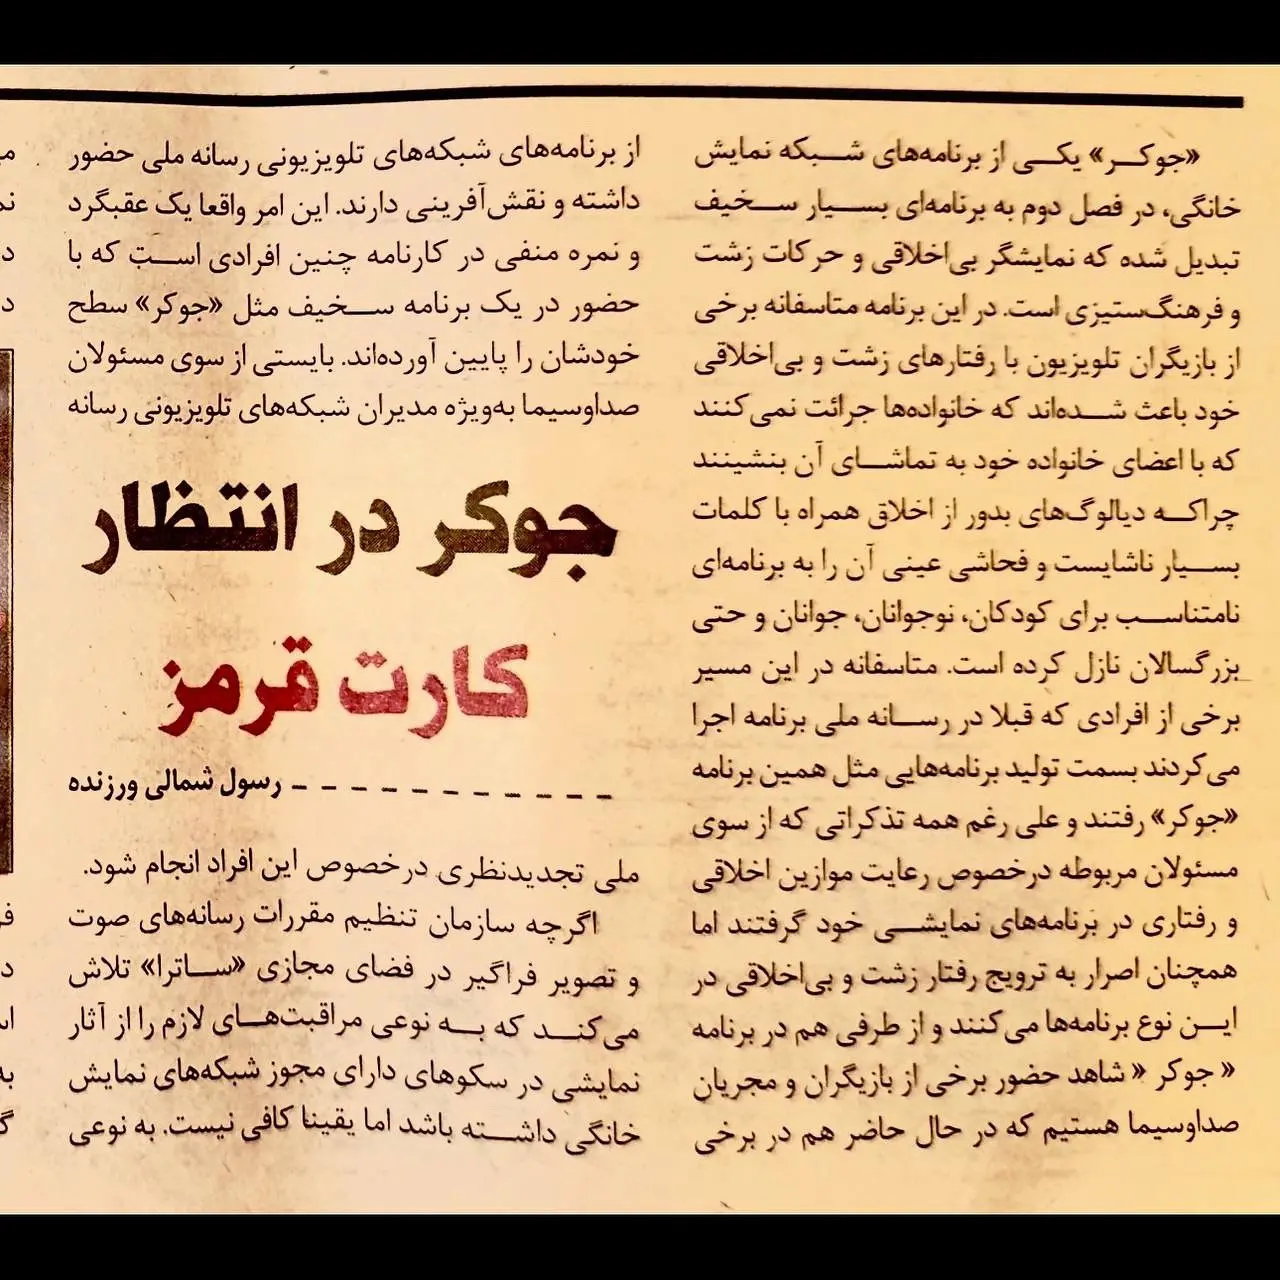 «جوکر» یکی از برنامه‌های شبکه نمایش
خانگی، در فصل دوم به برنامه‌ای بسیار سخیف
تبدیل شده که نمایشگر بی‌اخلاقی و حرکات زشت
و فرهنگ‌ستیزی است. در این برنامه متاسفانه برخی
از بازیگران تلویزیون با رفتارهای زشت و بی‌اخلاقی
خود باعث شده‌اند که خانواده‌ها جرائت نمی‌کنند
که با اعضای خانواده خود به تماشای آن بنشینند
چراکه دیالوگ‌های بدور از اخلاق همراه با کلمات
بسیار ناشایست و فحاشی عینی آن را به برنامه‌ای
نامتناسب برای کودکان، نوجوانان، جوانان و حتی
بزرگسالان نازل کرده است. متاسفانه در این مسیر
برخی از افرادی که قبلا در رسانه ملی برنامه اجرا
می‌کردند بسمت تولید برنامه‌هایی مثل همین برنامه
«جوکر» رفتند و علی رغم همه تذکراتی که از سوی
مسئولان مربوطه درخصوص رعایت موازین اخلاقی
و رفتاری در برنامه‌های نمایشی خود گرفتند اما
همچنان اصرار به ترویج رفتار زشت و بی‌اخلاقی در
این نوع برنامه‌ها می‌کنند و از طرفی هم در برنامه
« جوکر « شاهد حضور برخی از بازیگران و مجریان
صداوسیما هستیم که در حال حاضر هم در برخی
از برنامه‌های شبکه‌های تلویزیونی رسانه ملی حضور
داشته و نقش‌آفرینی دارند. این امر واقعا یک عقبگرد
و نمره منفی در کارنامه چنین افرادی است که با
حضور در یک برنامه سخیف مثل «جوکر» سطح
خودشان را پایین آورده‌اند. بایستی از سوی مسئولان
صداوسیما به‌ویژه مدیران شبکه‌های تلویزیونی رسانه
جوکر در انتظار
کارت قرمز
رسول شمالی ورزنده
ملی تجدیدنظری درخصوص این افراد انجام شود.
اگرچه سازمان تنظیم مقررات رسانه‌های صوت
و تصویر فراگیر در فضای مجازی «ساترا» تلاش
می‌کند که به نوعی مراقبت‌های لازم را از آثار
نمایشی در سکوهای دارای مجوز شبکه‌های نمایش
خانگی داشته باشد اما یقینا کافی نیست. به نوعی